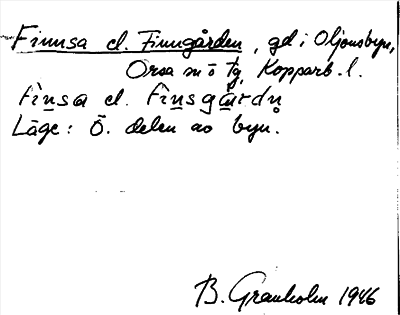 Finnsa el. Finngården, gd i Oljonsbyn,
Orsa sn o tg, Kopparb. l.
fìn̲sa el. fìn̲sgå̲rdn̥
Läge: Ö. delen av byn.
B. Granholm 1946